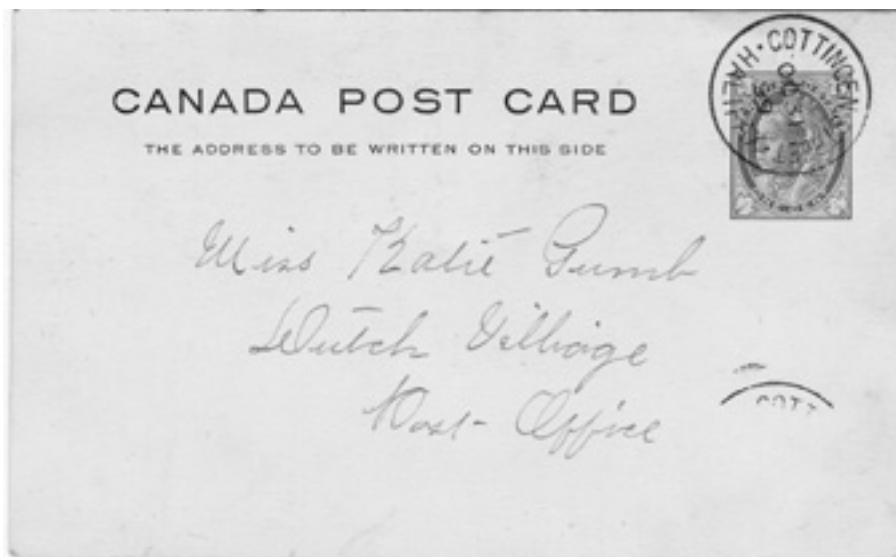 CANADA POST CARD
THE ADDRESS TO BE WRITTEN ON THIS SIDE
COTTINGEN
Miss Katie Gumb
Dutch Village
Post Office
COTT